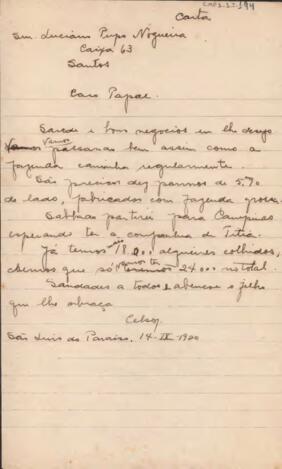 CMP2.1.2.194
Carta
Snr. Luciano Pupo Nogueira
Caixa 63
Santos
Caro Papae.
Saude e bons negocios eu lhe desejo
Vamos passando bem assim como a
fazenda caminha regularmente.
São precisos dez pannos de 5,70
de lado, fabricados com fazenda grossa.
Sabbado partirei para Campinas
esperando ter a companhia de Titia.
Já temos 18.000 alqueires colhidos,
cremos que só teremos 24.000 no total.
Saudades a todos e abençoe o filho
que lhe abraça
Celso
São Luis do Paraiso, 14-IX-1920